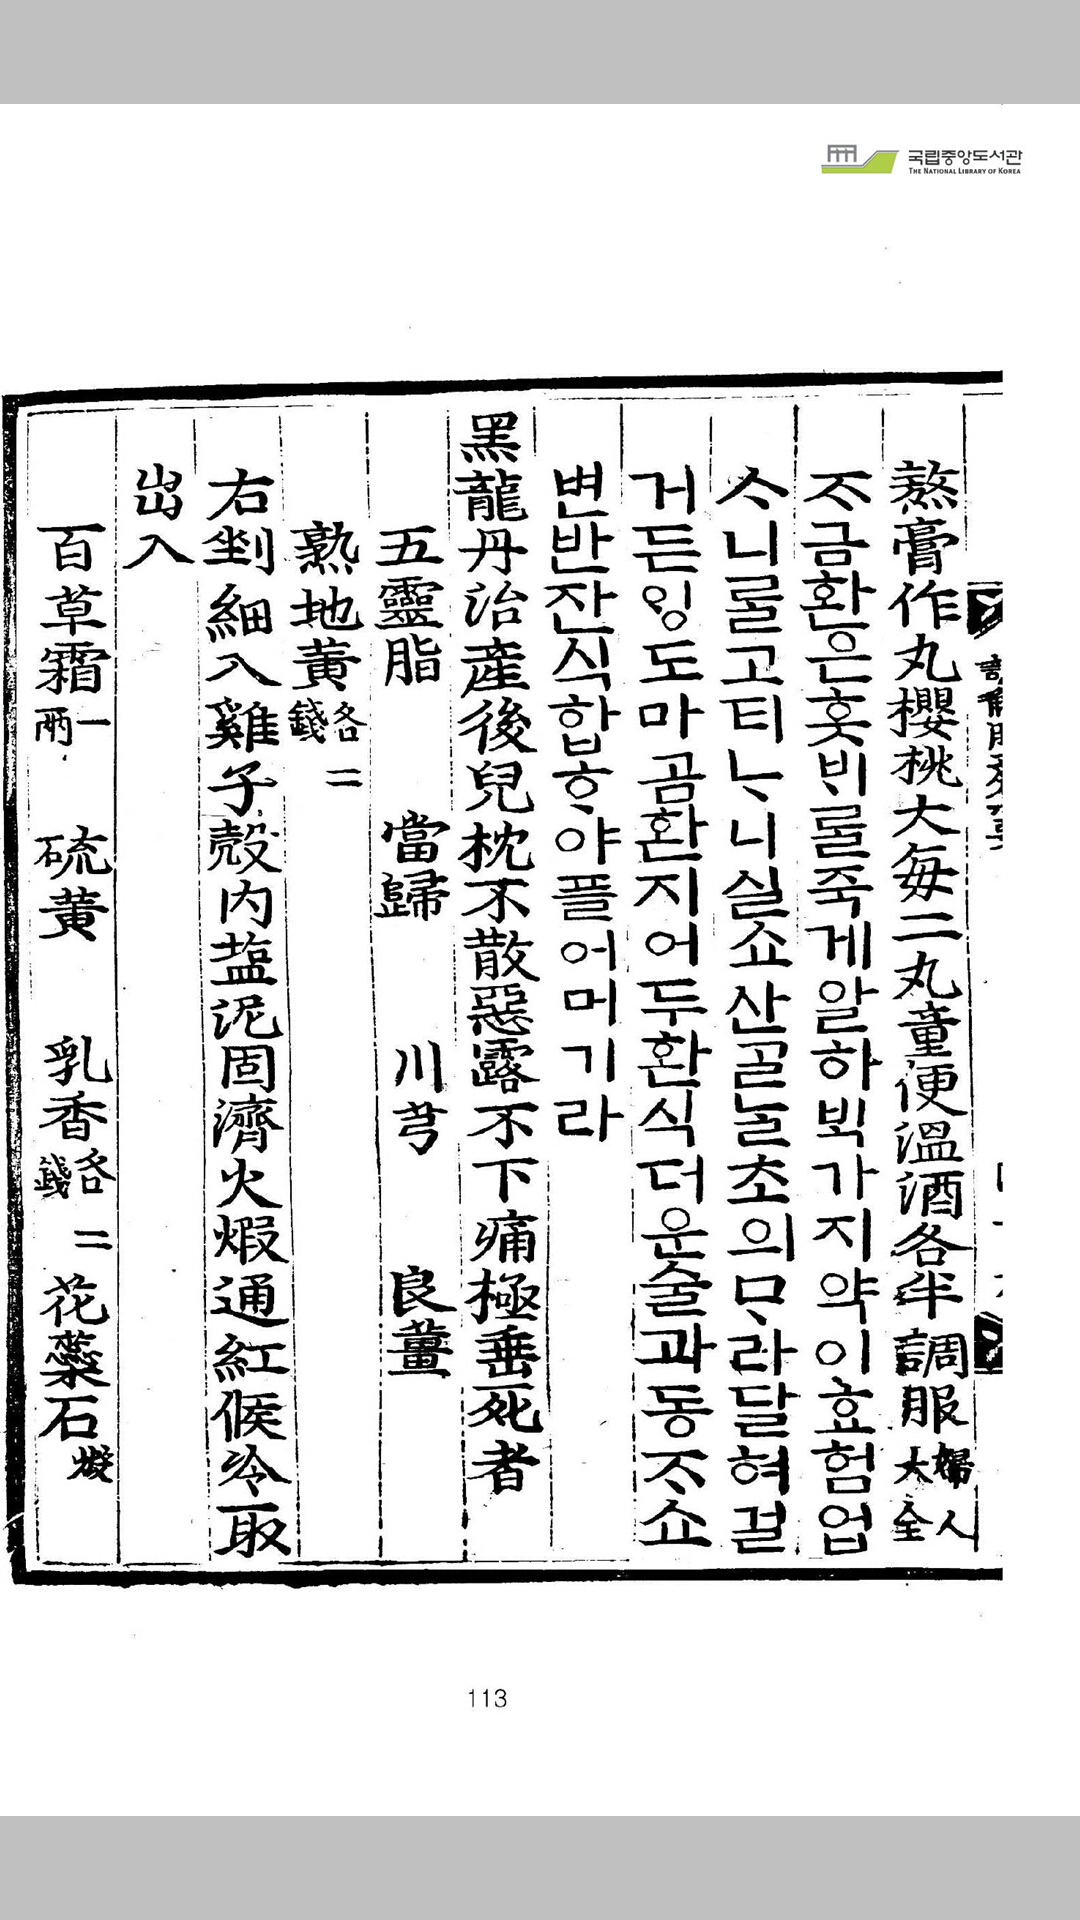 국립중앙도서관
THE NATIONAL LIBRARY OF KOREA
熬膏作丸櫻桃大每二丸童便溫酒各半調服婦人大全
ᄌᆞ금환은 홋ᄇᆡ를 죽게 알하 ᄇᆡᆨ가지 약이 효험 업
ᄉᆞ니를 고티ᄂᆞ니 실쇼산 골ᄂᆞᆯ 초의 ᄆᆞ라 달혀 걸
거든 잉도마곰 환 지어 두 환식 더운 술과 동ᄌᆞ쇼
변 반 잔식 합ᄒᆞ야 플어 머기라
黑龍丹治産後兒枕不散惡露不下痛極垂死者
五靈脂 當歸 川芎 良薑
熟地黃各二錢
右剉細入雞子殼內塩泥固濟火煆通紅候冷取
出入
百草霜一兩 硫黃 乳香各二錢 花蘂石煆
113